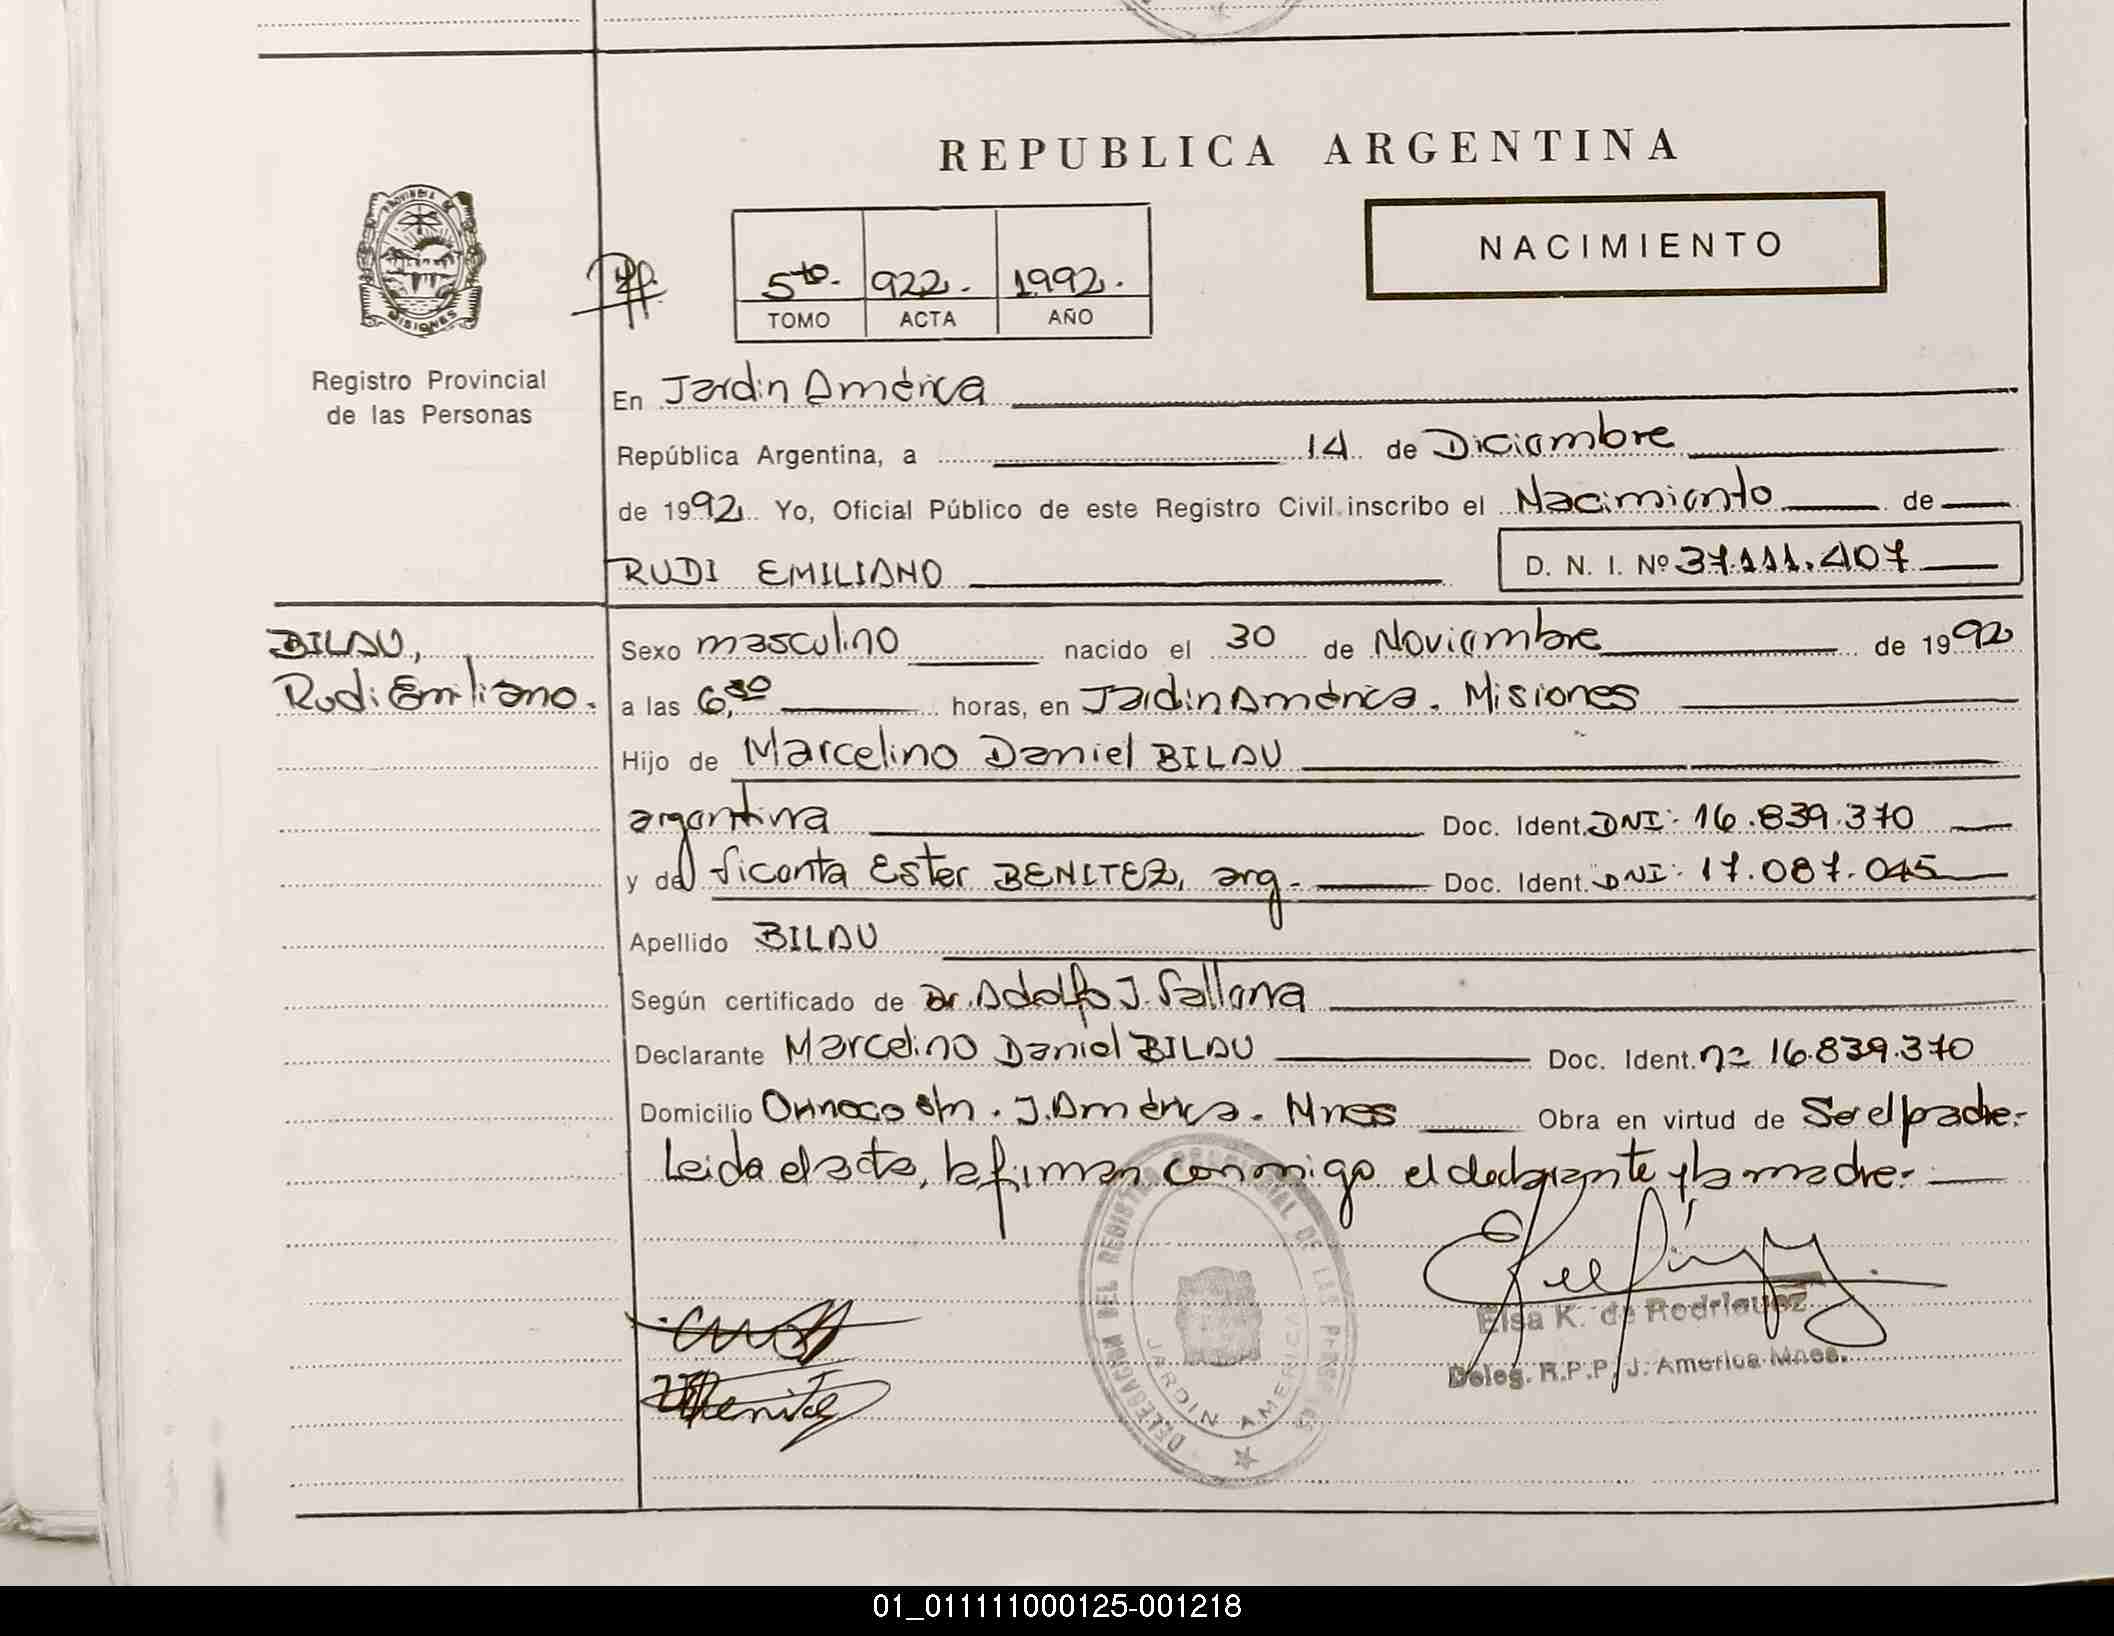 REPUBLICA ARGENTINA
PROVINCIA DE
MISIONES
Registro Provincial
de las Personas
5to. 922. 1992.
TOMO ACTA AÑO
NACIMIENTO
En Jardin América
República Argentina, a 14 de Diciembre
de 1992 Yo, Oficial Público de este Registro Civil inscribo el Nacimiento de
RUDI EMILIANO D. N. I. Nº 37.111.407
BILAU,
Rudi Emiliano.
Sexo masculino nacido el 30 de Noviembre de 1992
a las 6,30 horas, en Jardin América. Misiones
Hijo de Marcelino Daniel BILAU
argentina Doc. Ident. DNI: 16.839.370
y de Ester BENITEZ, arg. Doc. Ident. DNI: 17.087.045
Apellido BILAU
Según certificado de Dr. Adolfo J.
Declarante Marcelino Daniel BILAU Doc. Ident. nº 16.839.370
Domicilio Orinoco s/n. J. América. Mnes Obra en virtud de Ser el padre.-
Leida el acta, la firman conmigo el declarante y la madre.-
DELEGACION DEL REGISTRO PROVINCIAL DE LAS PERSONAS
JARDIN AMERICA
Elsa K. de Rodriguez
Deleg. R.P.P. J. America Mnes.
Benitez
01_011111000125-001218